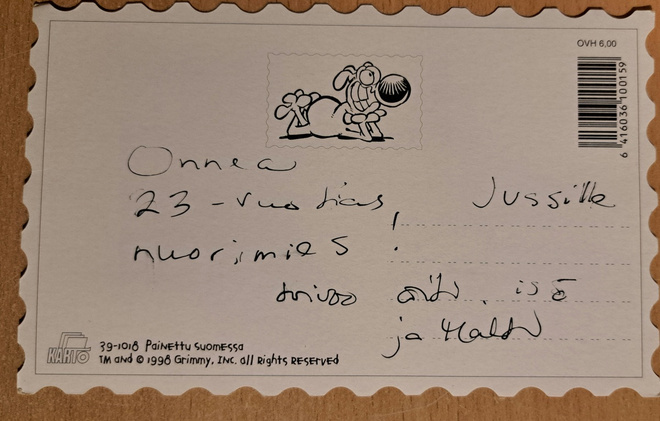 OVH 6,00
6 416036 100159
Onnea
23-vuotias, Jussille
nuorimies!
toivoo äiti, isä
ja
KARTO
39-1018 Painettu Suomessa
TM and © 1998 Grimmy, Inc. all rights reserved